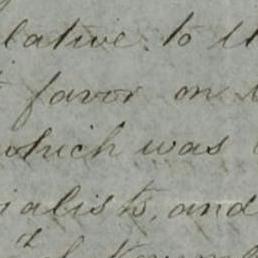 lative to
favor on
which was
ialists, and